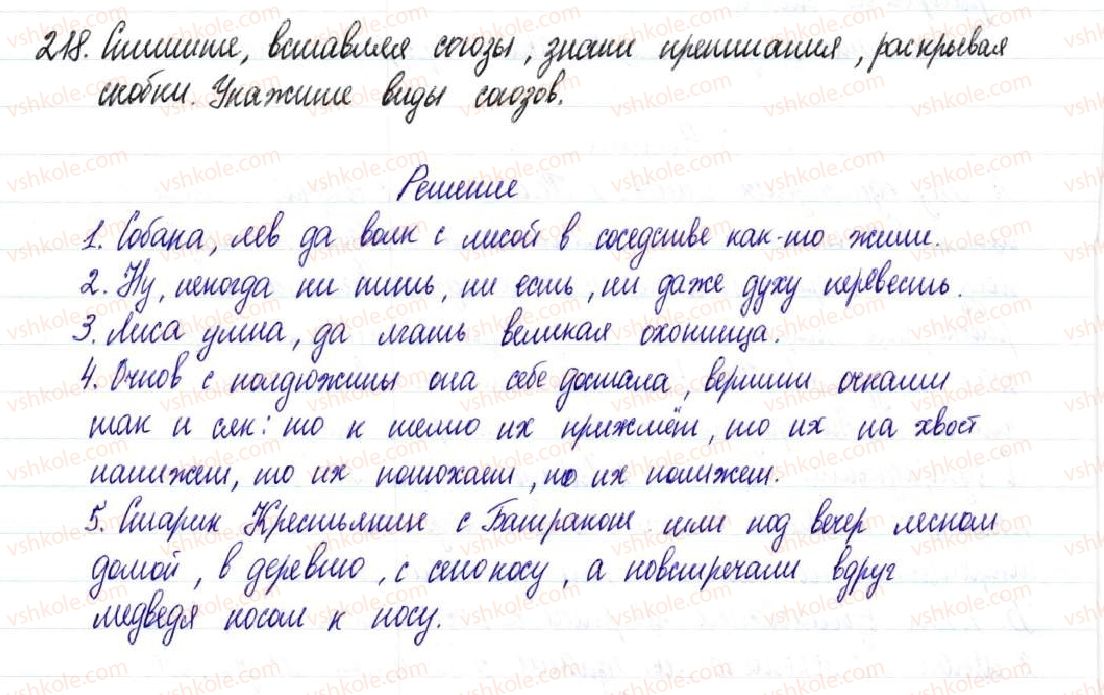 218. Спишите, вставляя союзы, знаки препинания, раскрывая
скобки. Укажите виды союзов.
Решение
1. Собака, лев да волк с лисой в соседстве как-то жили.
2. Ну, некогда ни пить, ни есть, ни даже духу перевесть.
3. Лиса умна, да лгать великая охотница.
4. Очков с полдюжины она себе достала, вертит очками
так и сяк: то к темю их прижмёт, то их на хвост
нанижет, то их понюхает, то их полижет.
5. Старик Крестьянин с Батраком шли под вечер леском
домой, в деревню, с сенокосу, а повстречали вдруг
медведя носом к носу.